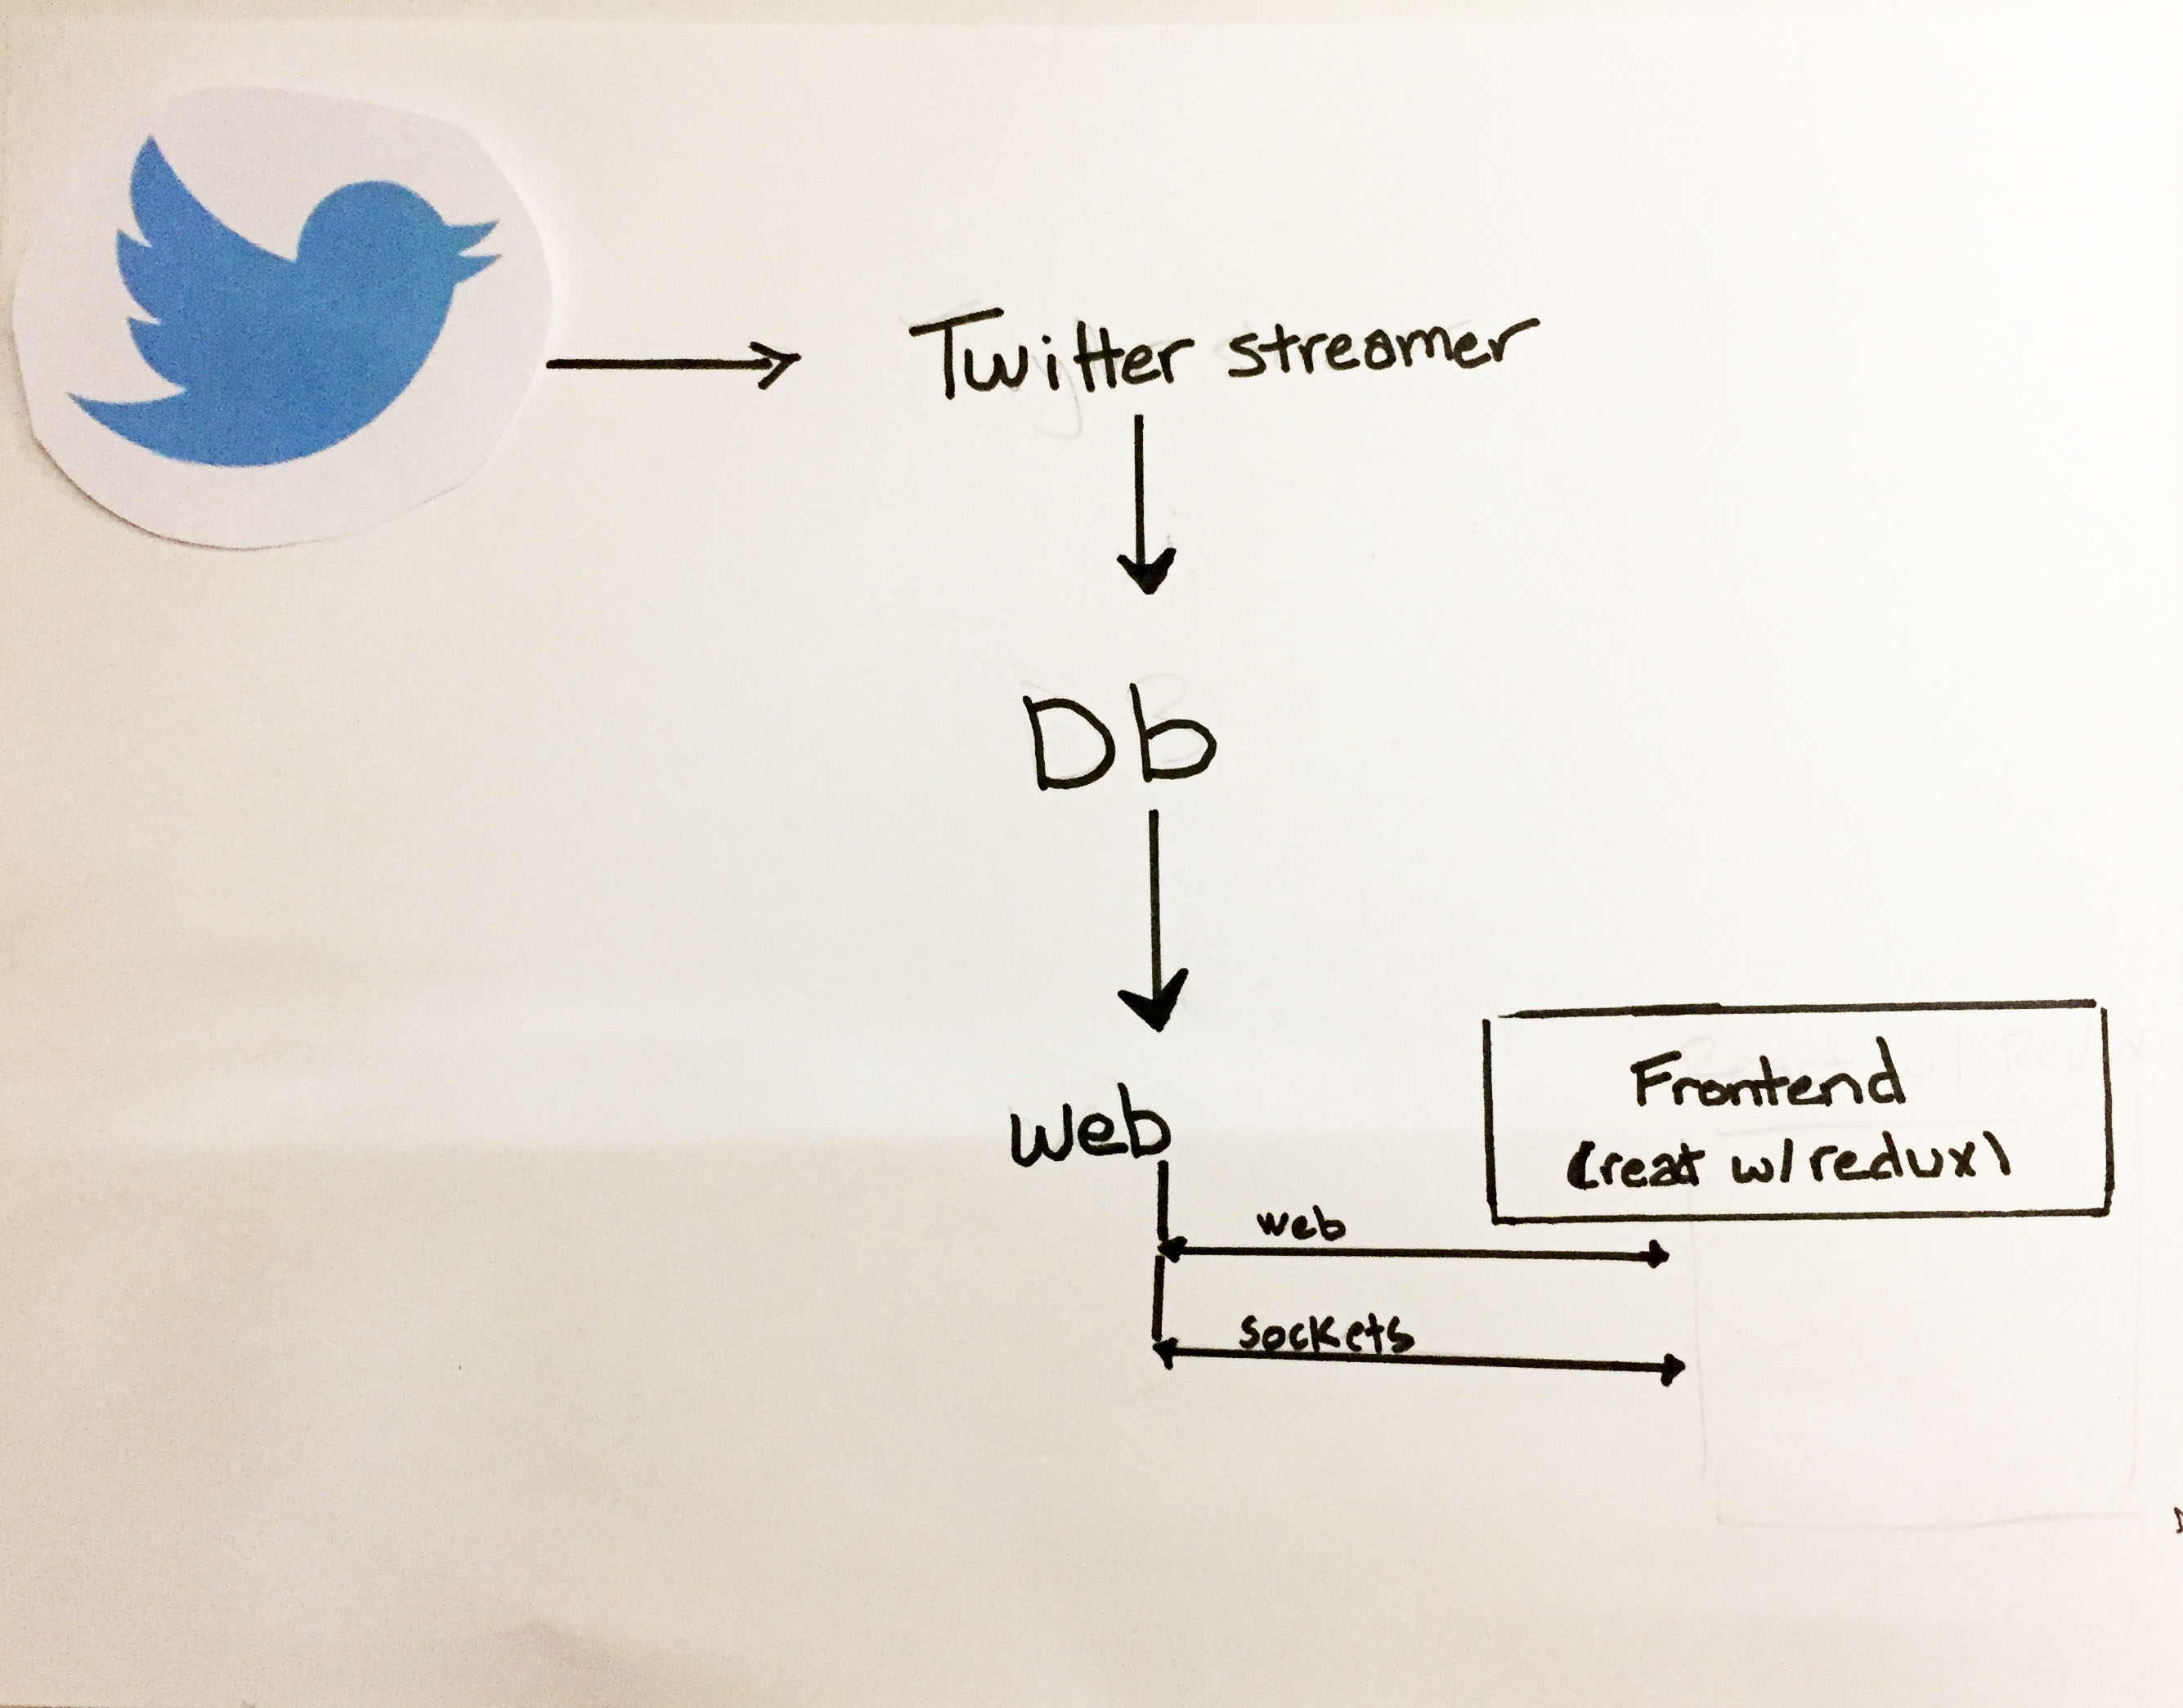 Twitter streamer
Db
web
Frontend
(reat w/redux)
web
sockets